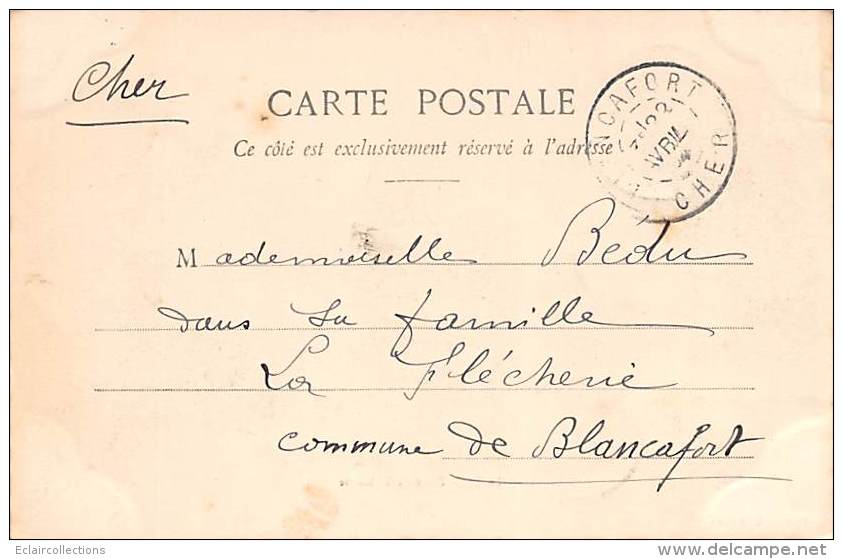 Cher
CARTE POSTALE
Ce côté est exclusivement réservé à l'adresse
NCAFORT
22
AVRIL
CHER
Mademoiselle Bédu
dans sa famille
La Flécherie
commune de Blancafort
Eclaircollections
www.delcampe.net